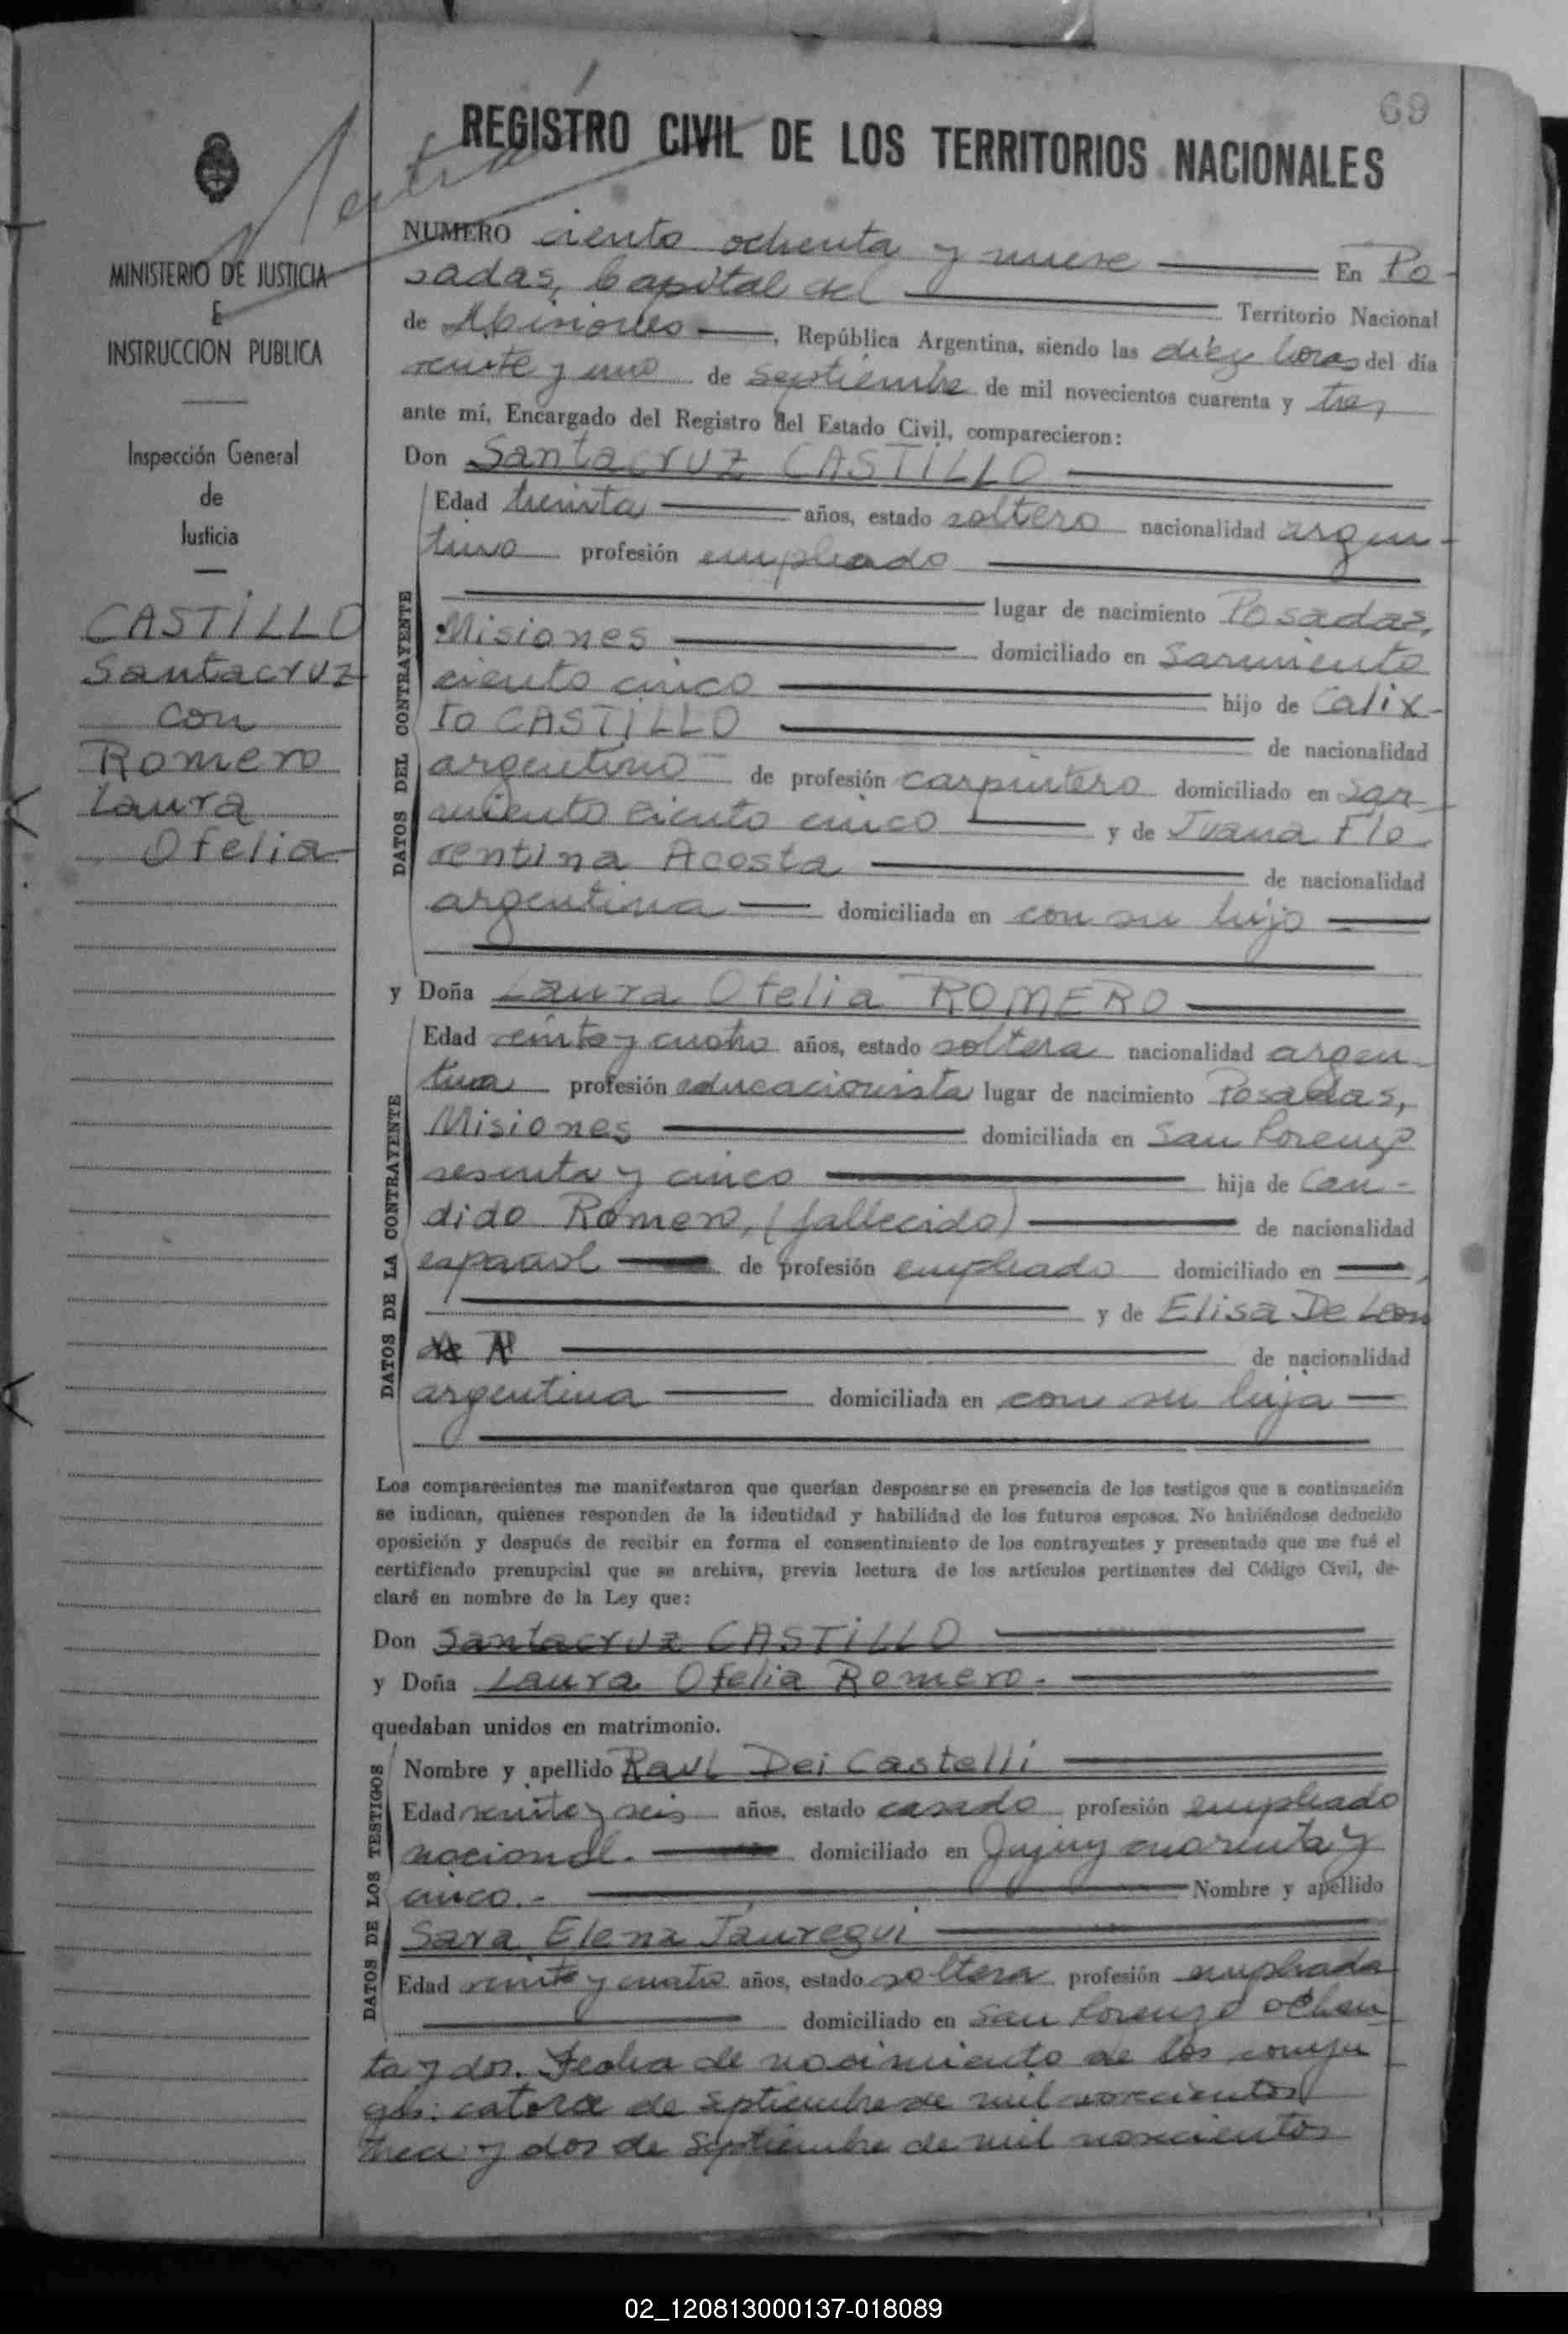 69
REGISTRO CIVIL DE LOS TERRITORIOS NACIONALES
MINISTERIO DE JUSTICIA
E
INSTRUCCION PUBLICA
Inspección General
de
Justicia
CASTILLO
Santacruz
con
Romero
Laura
Ofelia
NUMERO ciento ochenta y nueve En Po-
sadas, Capital del Territorio Nacional
de Misiones, República Argentina, siendo las diez horas del día
veinte y uno de septiembre de mil novecientos cuarenta y tres
ante mí, Encargado del Registro del Estado Civil, comparecieron:
Don Santacruz CASTILLO
DATOS DEL CONTRAYENTE
Edad treinta años, estado soltero nacionalidad argen-
tino profesión empleado
lugar de nacimiento Posadas,
Misiones domiciliado en Sarmiento
ciento cinco hijo de Calix-
to CASTILLO de nacionalidad
argentino de profesión carpintero domiciliado en Sar-
miento ciento cinco y de Juana Flo-
rentina Acosta de nacionalidad
argentina domiciliada en con su hijo
y Doña Laura Ofelia ROMERO
DATOS DE LA CONTRAYENTE
Edad veinte y cuatro años, estado soltera nacionalidad argen-
tina profesión educacionista lugar de nacimiento Posadas,
Misiones domiciliada en San Lorenzo
sesenta y cinco hija de Can-
dido Romero, (fallecido) de nacionalidad
español de profesión empleado domiciliado en
y de Elisa De Leon
de nacionalidad
argentina domiciliada en con su hija
Los comparecientes me manifestaron que querían desposarse en presencia de los testigos que a continuación
se indican, quienes responden de la identidad y habilidad de los futuros esposos. No habiéndose deducido
oposición y después de recibir en forma el consentimiento de los contrayentes y presentado que me fué el
certificado prenupcial que se archiva, previa lectura de los artículos pertinentes del Código Civil, de-
claré en nombre de la Ley que:
Don Santacruz CASTILLO
y Doña Laura Ofelia Romero.
quedaban unidos en matrimonio.
DATOS DE LOS TESTIGOS
Nombre y apellido Raul Dei Castelli
Edad veinte y seis años, estado casado profesión empleado
nacional. domiciliado en Jujuy cuarenta y
cinco.- Nombre y apellido
Sara Elena Jauregui
Edad veinte y cuatro años, estado soltera profesión empleada
domiciliado en San Lorenzo ochen-
ta y dos. Fecha de nacimiento de los conyu
ges: catorce de septiembre de mil novecientos
trece y dos de septiembre de mil novecientos
02_120813000137-018089